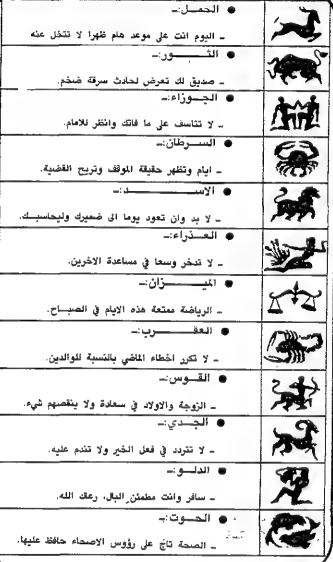 ● الحمــل:ــ
ــ اليوم انت على موعد هام ظهرا لا تتخل عنه
● الثــــور:ــ
ــ صديق لك تعرض لحادث سرقة ضخم.
● الجــوزاء:ــ
ــ لا تتاسف على ما فاتك وانظر للامام.
● الســرطان:ــ
ــ ايام وتظهر حقيقة الموقف وتربح القضية.
● الاســــــــد:ــ
ــ لا بد وان تعود يوما الى ضميرك وليحاسبك.
● العــذراء:ــ
ــ لا تدخر وسعا في مساعدة الاخرين.
● الميــــزان:ــ
ــ الرياضة ممتعة هذه الايام في الصباح.
● العقــــرب:ــ
ــ لا تكرر اخطاء الماضي بالنسبة للوالدين.
● القــوس:ــ
ــ الزوجة والاولاد في سعادة ولا ينقصهم شيء.
● الجــدي:ــ
ــ لا تتردد في فعل الخير ولا تندم عليه.
● الدلــو:ــ
ــ سافر وانت مطمئن البال، رعاك الله.
● الحــوت:ــ
ــ الصحة تاج على رؤوس الاصحاء حافظ عليها.